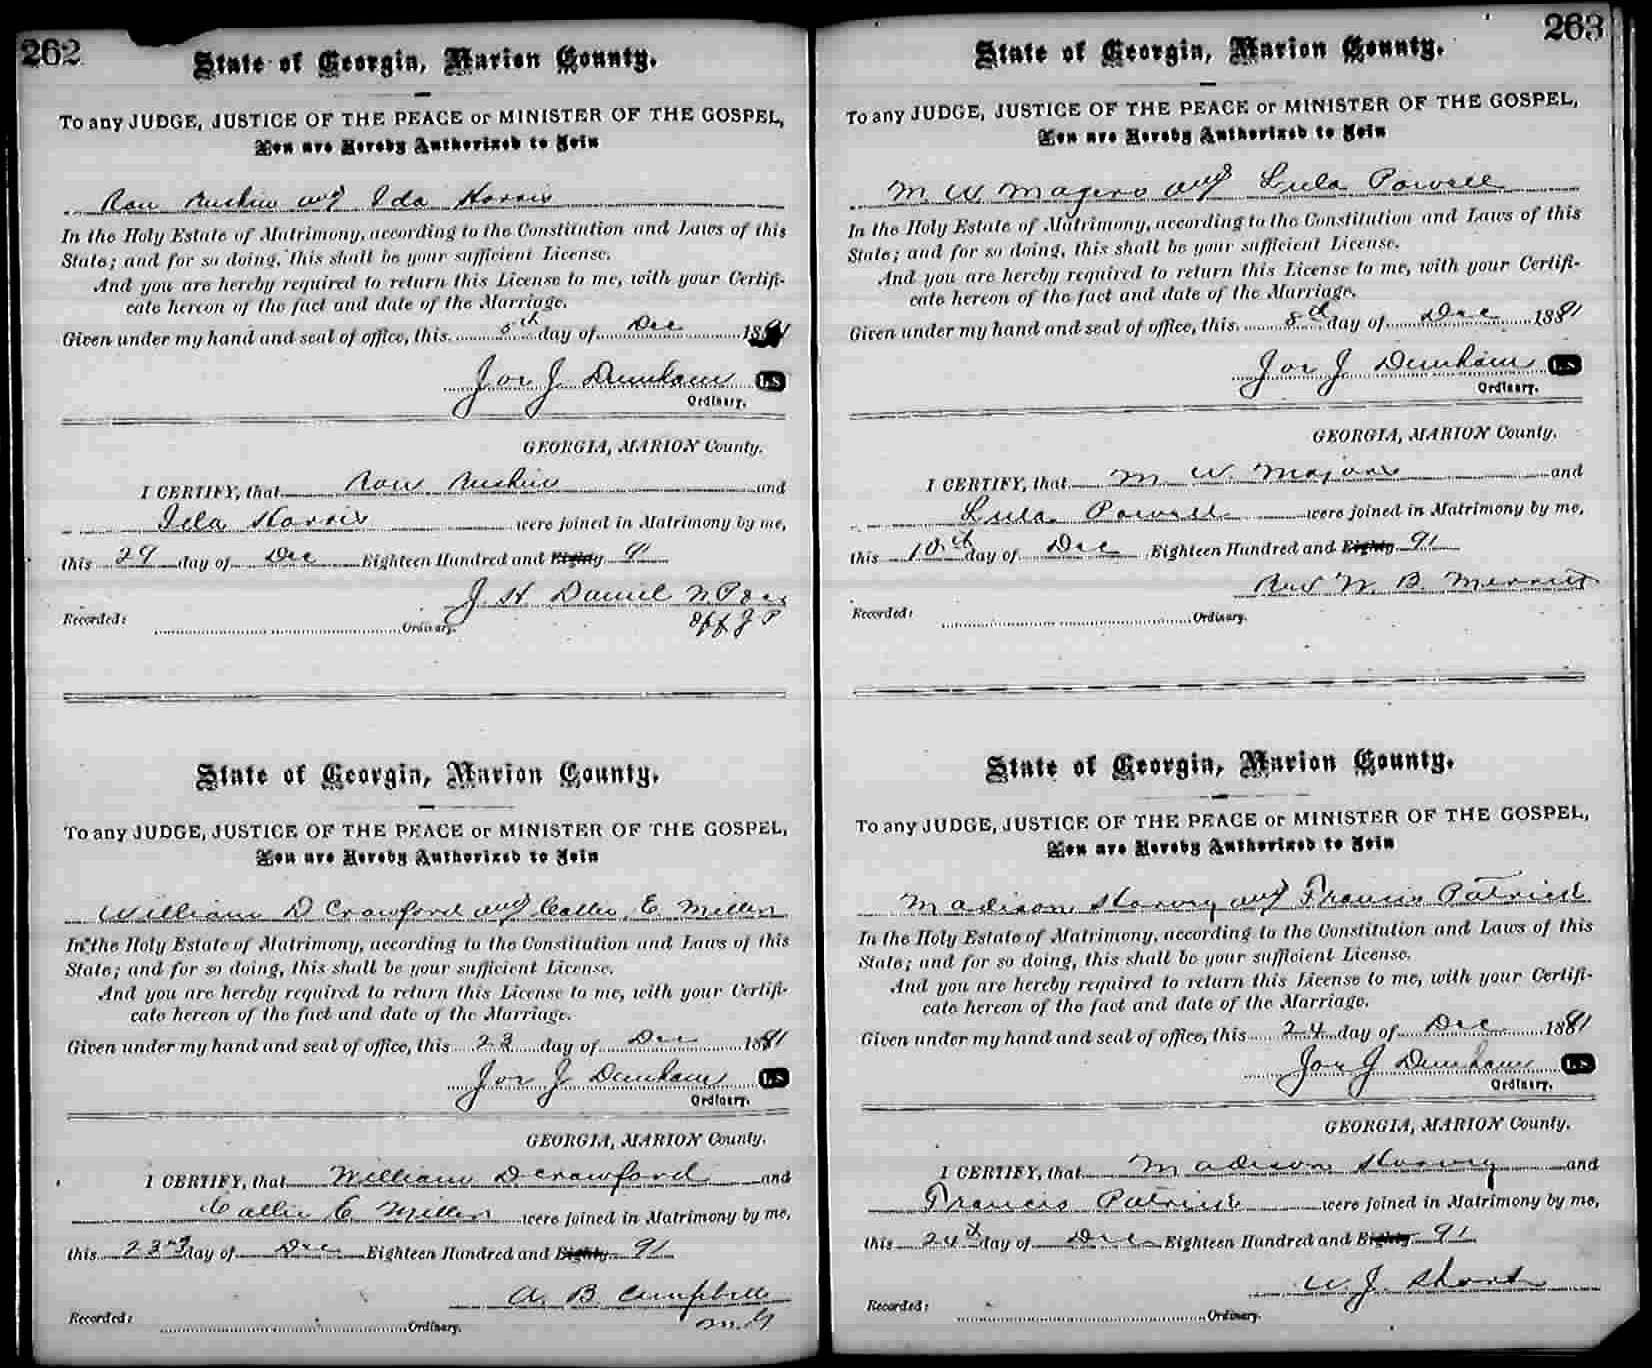 262
State of Georgia, Marion County.
To any JUDGE, JUSTICE OF THE PEACE or MINISTER OF THE GOSPEL,
You are Hereby Authorized to Join
and Ida Harris
In the Holy Estate of Matrimony, according to the Constitution and Laws of this
State; and for so doing, this shall be your sufficient License.
And you are hereby required to return this License to me, with your Certifi-
cate hereon of the fact and date of the Marriage.
Given under my hand and seal of office, this day of Dec 1891
Jos J Dunham L S
Ordinary.
GEORGIA, MARION County.
I CERTIFY, that and
Ida Harris were joined in Matrimony by me,
this 29 day of Dec Eighteen Hundred and Eighty 91
J. H. Daniel N. P.
Off J P
Recorded: Ordinary.
State of Georgia, Marion County.
To any JUDGE, JUSTICE OF THE PEACE or MINISTER OF THE GOSPEL,
You are Hereby Authorized to Join
William D Crawford and Callie E Miller
In the Holy Estate of Matrimony, according to the Constitution and Laws of this
State; and for so doing, this shall be your sufficient License.
And you are hereby required to return this License to me, with your Certifi-
cate hereon of the fact and date of the Marriage.
Given under my hand and seal of office, this 23 day of Dec 1891
Jos J Dunham L S
Ordinary.
GEORGIA, MARION County.
I CERTIFY, that William D Crawford and
Callie E Miller were joined in Matrimony by me,
this 23rd day of Dec Eighteen Hundred and Eighty 91
A. B. Campbell
M. G
Recorded: Ordinary.
263
State of Georgia, Marion County.
To any JUDGE, JUSTICE OF THE PEACE or MINISTER OF THE GOSPEL,
You are Hereby Authorized to Join
M. W. and Lula Powell
In the Holy Estate of Matrimony, according to the Constitution and Laws of this
State; and for so doing, this shall be your sufficient License.
And you are hereby required to return this License to me, with your Certifi-
cate hereon of the fact and date of the Marriage.
Given under my hand and seal of office, this 8th day of Dec 1891
Jos J Dunham L S
Ordinary.
GEORGIA, MARION County.
I CERTIFY, that M W. Majors and
Lula Powell were joined in Matrimony by me,
this 10th day of Dec Eighteen Hundred and Eighty 91
Rev W. B. Merritt
Recorded: Ordinary.
State of Georgia, Marion County.
To any JUDGE, JUSTICE OF THE PEACE or MINISTER OF THE GOSPEL,
You are Hereby Authorized to Join
Madison Harvey and Francis Patrick
In the Holy Estate of Matrimony, according to the Constitution and Laws of this
State; and for so doing, this shall be your sufficient License.
And you are hereby required to return this License to me, with your Certifi-
cate hereon of the fact and date of the Marriage.
Given under my hand and seal of office, this 24 day of Dec 1891
Jos J Dunham L S
Ordinary.
GEORGIA, MARION County.
I CERTIFY, that Madison Harvey and
Francis Patrick were joined in Matrimony by me,
this 24th day of Dec Eighteen Hundred and Eighty 91
W. J. Short
Recorded: Ordinary.